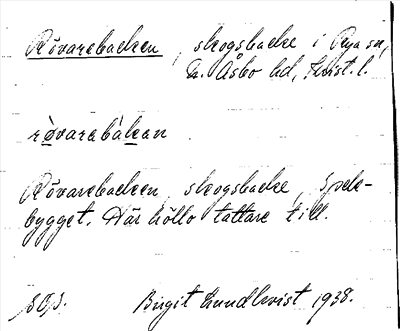 Rövarebacken, skogsbacke i Rya sn,
N. Åsbo hd, Krist. l.
rövarabakan
Rövarebacken, skogsbacke, Spele-
bygget. Här höllo tattare till.
Birgit Lundkvist 1938.